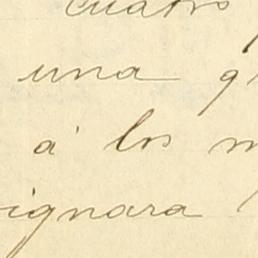 cuatro
una
á los
ignara